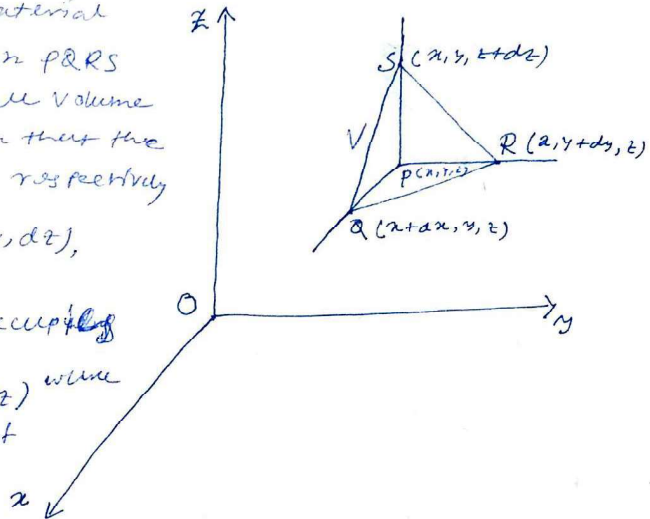 aterial
n PQRS
volume
n that the
respectively
, dz),
z) where
z
S (x, y, z+dz)
V
R (x, y+dy, z)
P(x,y,z)
Q (x+dx, y, z)
O
y
x